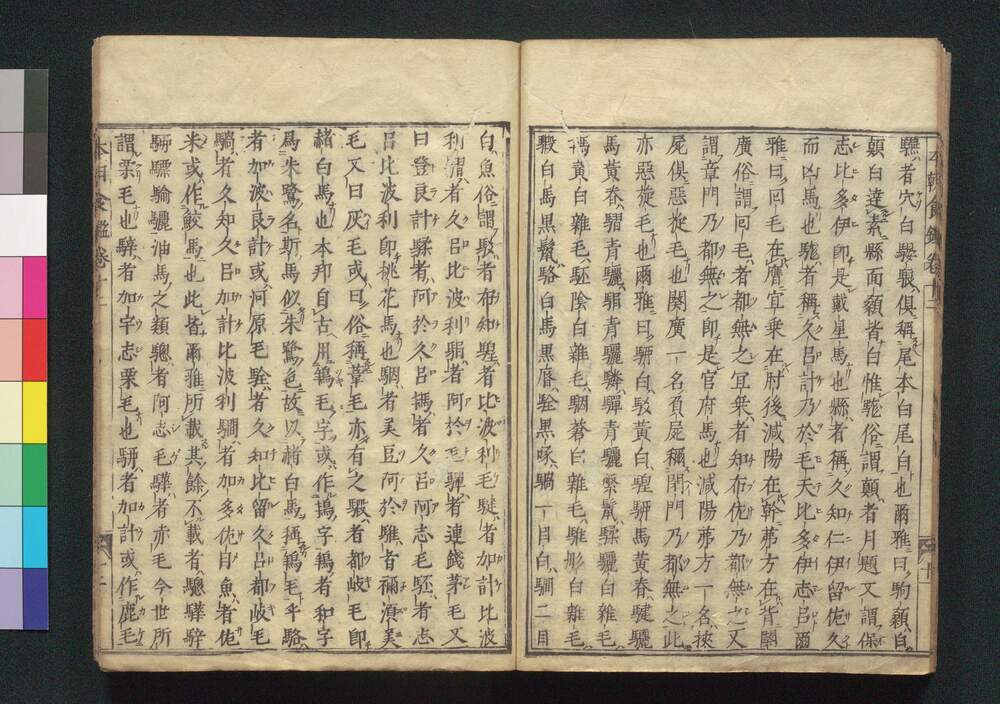 驠者穴白騴駺俱稱尾本白尾白也爾雅曰馰顙白
顛白達素縣面顙皆白惟駹俗謂顛者月題又謂保
志比多伊即是戴星馬也縣者稱久知仁伊留佐久
而凶馬也駹者稱久呂計乃於毛天比多伊志呂爾
雅曰囘毛在膺宜乘在肘後減陽在幹茀方在背闋
廣俗謂囘毛者都無之宜乘者知布佐乃都無之又
謂章門乃都無之即是官府馬也減陽茀方一名挾
屍俱惡旋毛也闋廣一名負屍稱閙門乃都無之此
亦惡旋毛也爾雅曰駵白駁黃白騜駵馬黃脊騝驪
馬黃脊騽青驪駽青驪驎驒青驪繁鬣騥驪白雜毛
駂黃白雜毛駓陰白雜毛駰蒼白雜毛騅彤白雜毛
騢白馬黑鬣駱白馬黑脣駩黑喙騧一目白瞷二目
白魚俗謂駁者布知騜者比波利毛騝者加計比波
利騽者久呂比波利駽者阿於毛驒者連錢茅毛又
曰登良計騥者阿於久呂駂者久呂阿志毛駓者志
呂比波利即桃花馬也駰者美豆阿於騅者禰濱美
毛又曰灰毛或曰俗稱葦毛亦有之騢者都岐毛即
赭白馬也本邦自古用鴾毛字或作鴇字鴾者和字
爲朱鷺名斯馬似朱鷺色故以赭白馬稱鴾毛乎駱
者加波良計或河原毛駩者久知比留久呂都岐毛
騧者久知久呂加計比波利瞷者加多佐目魚者佐
米或作鮫馬也此皆爾雅所載其餘不載者驄驊騂
駵驃騟驪油馬之類驄者阿志毛驊者赤毛今世所
謂栗毛也騂者加宇志栗毛也駵者加計或作鹿毛